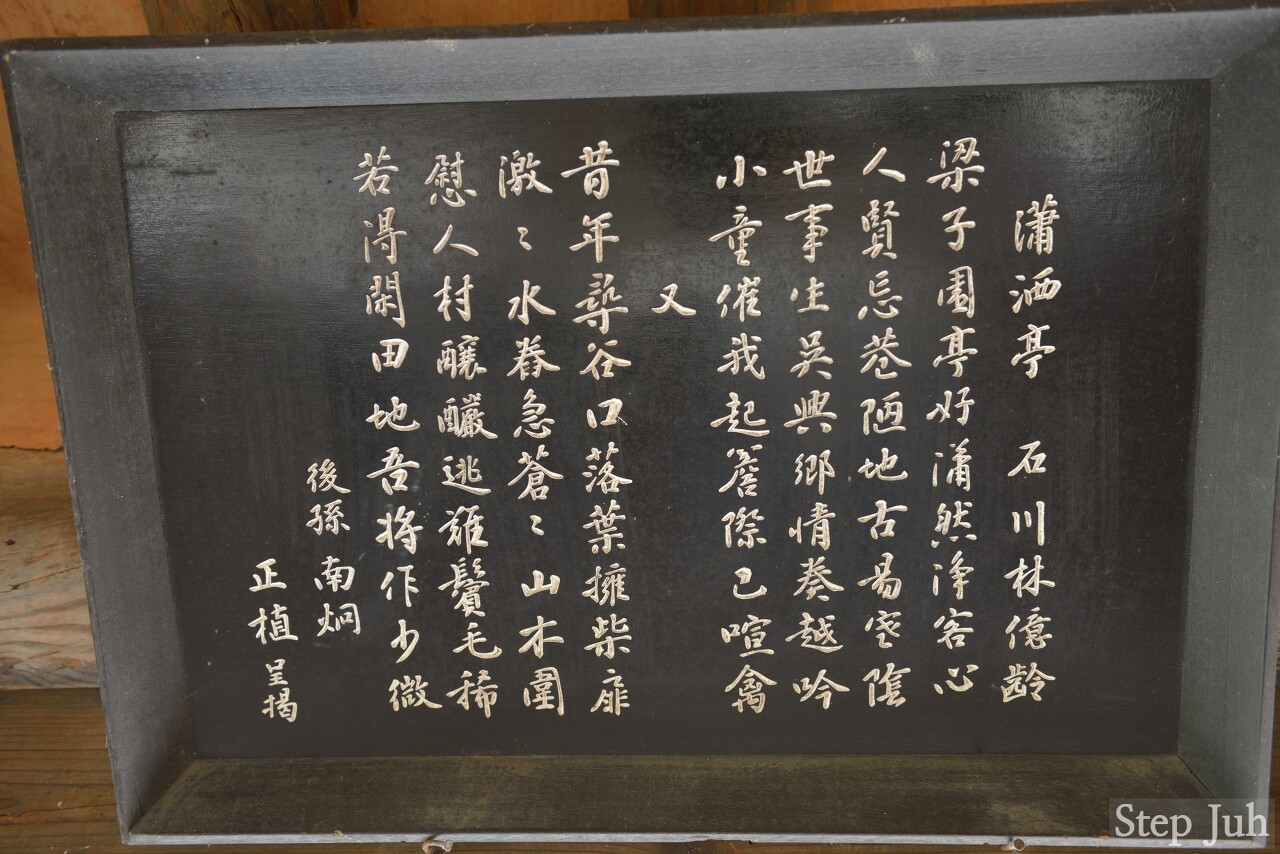 瀟洒亭 石川林億齡
梁子園亭好瀟然淨客心
人賢忘巷陋地古易密陰
世事生吳興鄉情奏越吟
小童催我起簷際已喧禽
又
昔年尋谷口落葉擁柴扉
激〻水眷急蒼〻山木圍
慰人村釀釅逃難鬢毛稀
若得閑田地吾將作少微
後孫 南炯
正植 呈揭
Step Juh